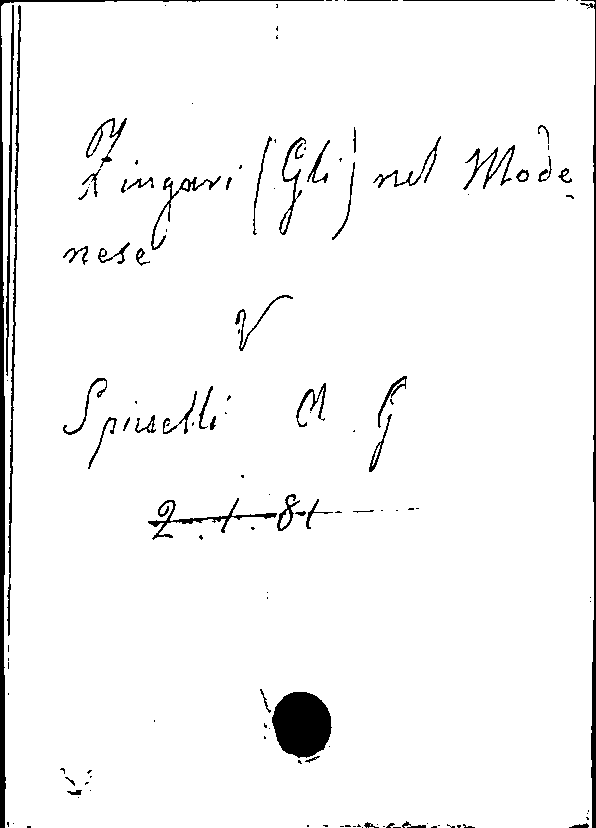 Zingari (Gli) nel Mode-
nese
V
Spinelli A G
2.1.81